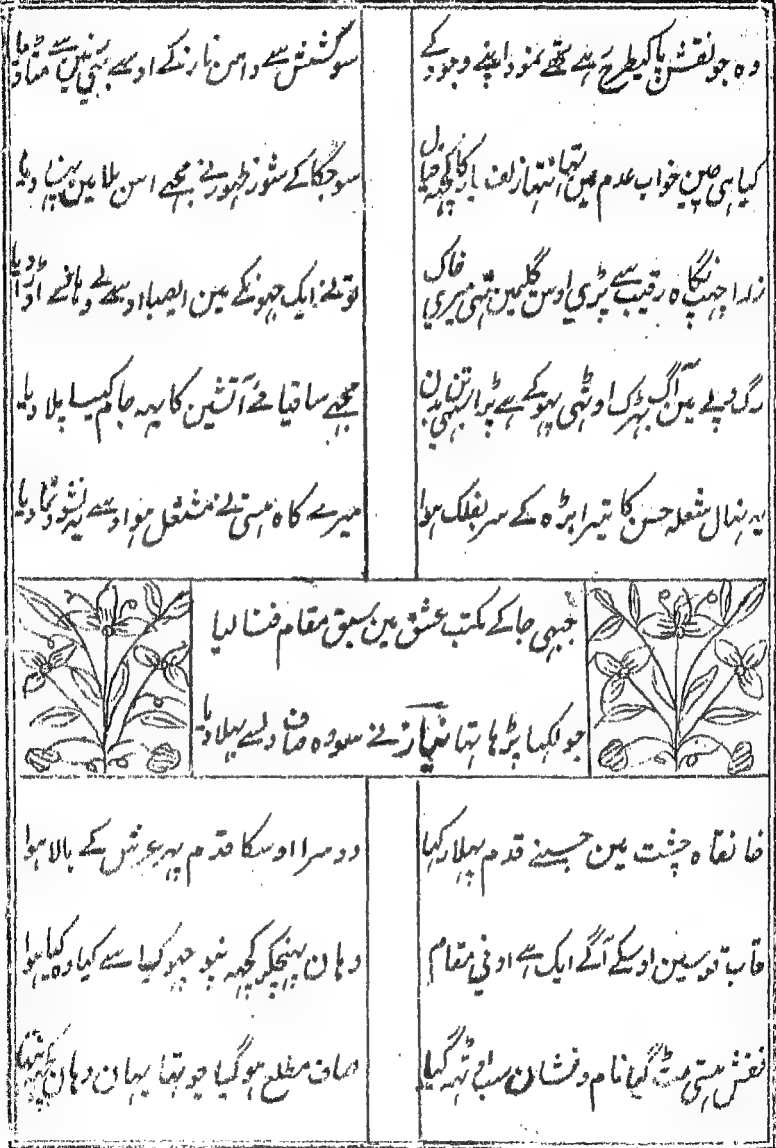 وہ جو نقش پا کیطرح رہے تھے نمود اپنے وجود کے
سو کشش سے دامن ناز نکے اوسے بہی زمین سے مٹا دیا
کیا ہی چین خواب عدم مین تہا نتہا زلف یار کا کچہہ خیال
سو جگا کے شور ظہور نے مجھے اس بلا مین پہنسا دیا
ذرا چہپ نگاہ رقیب سے پڑی اوس گلیمین تہی میری خاک
تونے ایک جہونکے مین ایصبا اوسے وہانسے اوڑا دیا
رگ و پے مین آگ بہڑک اوٹہی پہوکے ہے پڑا سبہی تن بدن
مجھے ساقیا مے آتشین کا یہہ جام کیسا پلا دیا
یہ نہال شعلہ حسن کا تیرا بڑہ کے سر بفلک ہوا
میرے کاہ ہستی نے مشتعل ہو اوسے یہ نشو نما دیا
جبہی جا کے مکتب عشق مین سبق مقام فنا لیا
جو لکہا پڑہا تہا نیاز نے سو وہ صاف دلسے بہلا دیا
خانقاہ چشت مین جسنے قدم پہلا رکہا
دوسرا اوسکا قدم پہر عرش کے بالا ہوا
قاب قوسین اوسکے آگے ایک ہے ادنی مقام
وہان پہنچکر کچہہ نپوچہو کیا سے کیا وہ کیا ہوا
نقش ہستی مٹ گیا نام و نشان سب اٹہہ گیا
صاف مطلع ہو گیا جو تہا یہان وہان کچہہ نتہا